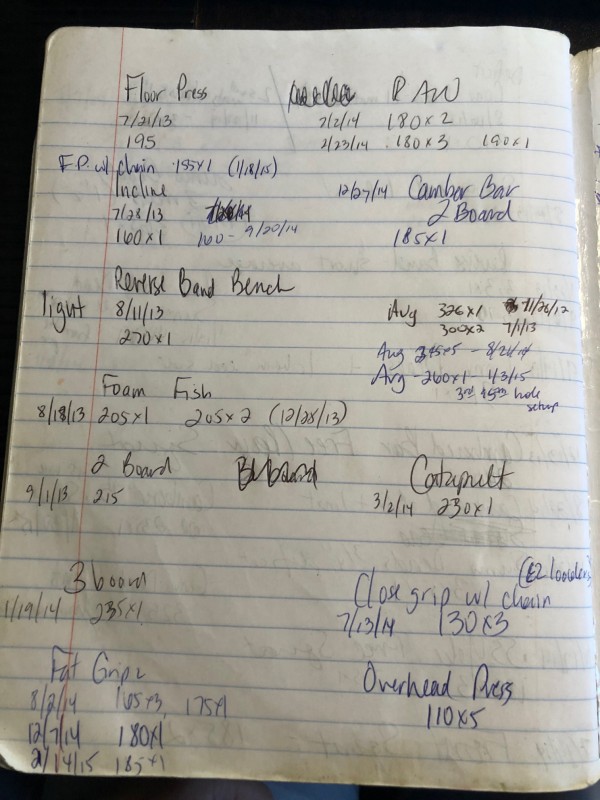 Floor Press
7/21/13
195
F.P. w/ chain 155x1 (1/18/15)
Incline
7/28/13
160x1 160 - 9/20/14
RAW
2/2/14 180x2
2/23/14 180x3 190x1
12/27/14 Camber Bar
2 Board
185x1
Reverse Band Bench
light 8/11/13
270x1
Avg 326x1 11/26/12
300x2 7/1/13
Avg - 8/24/14
Avg - 260x1 - 1/3/15
hole
setup
Foam Fish
8/18/13 205x1 205x2 (12/28/13)
2 Board
9/1/13 215
Catapult
3/2/14 230x1
3 board
1/19/14 235x1
Close grip w/ chain
7/13/14 130x3
Fat Gripz
8/2/14 165x3, 175x1
12/7/14 180x1
2/14/15 185x1
Overhead Press
110x5